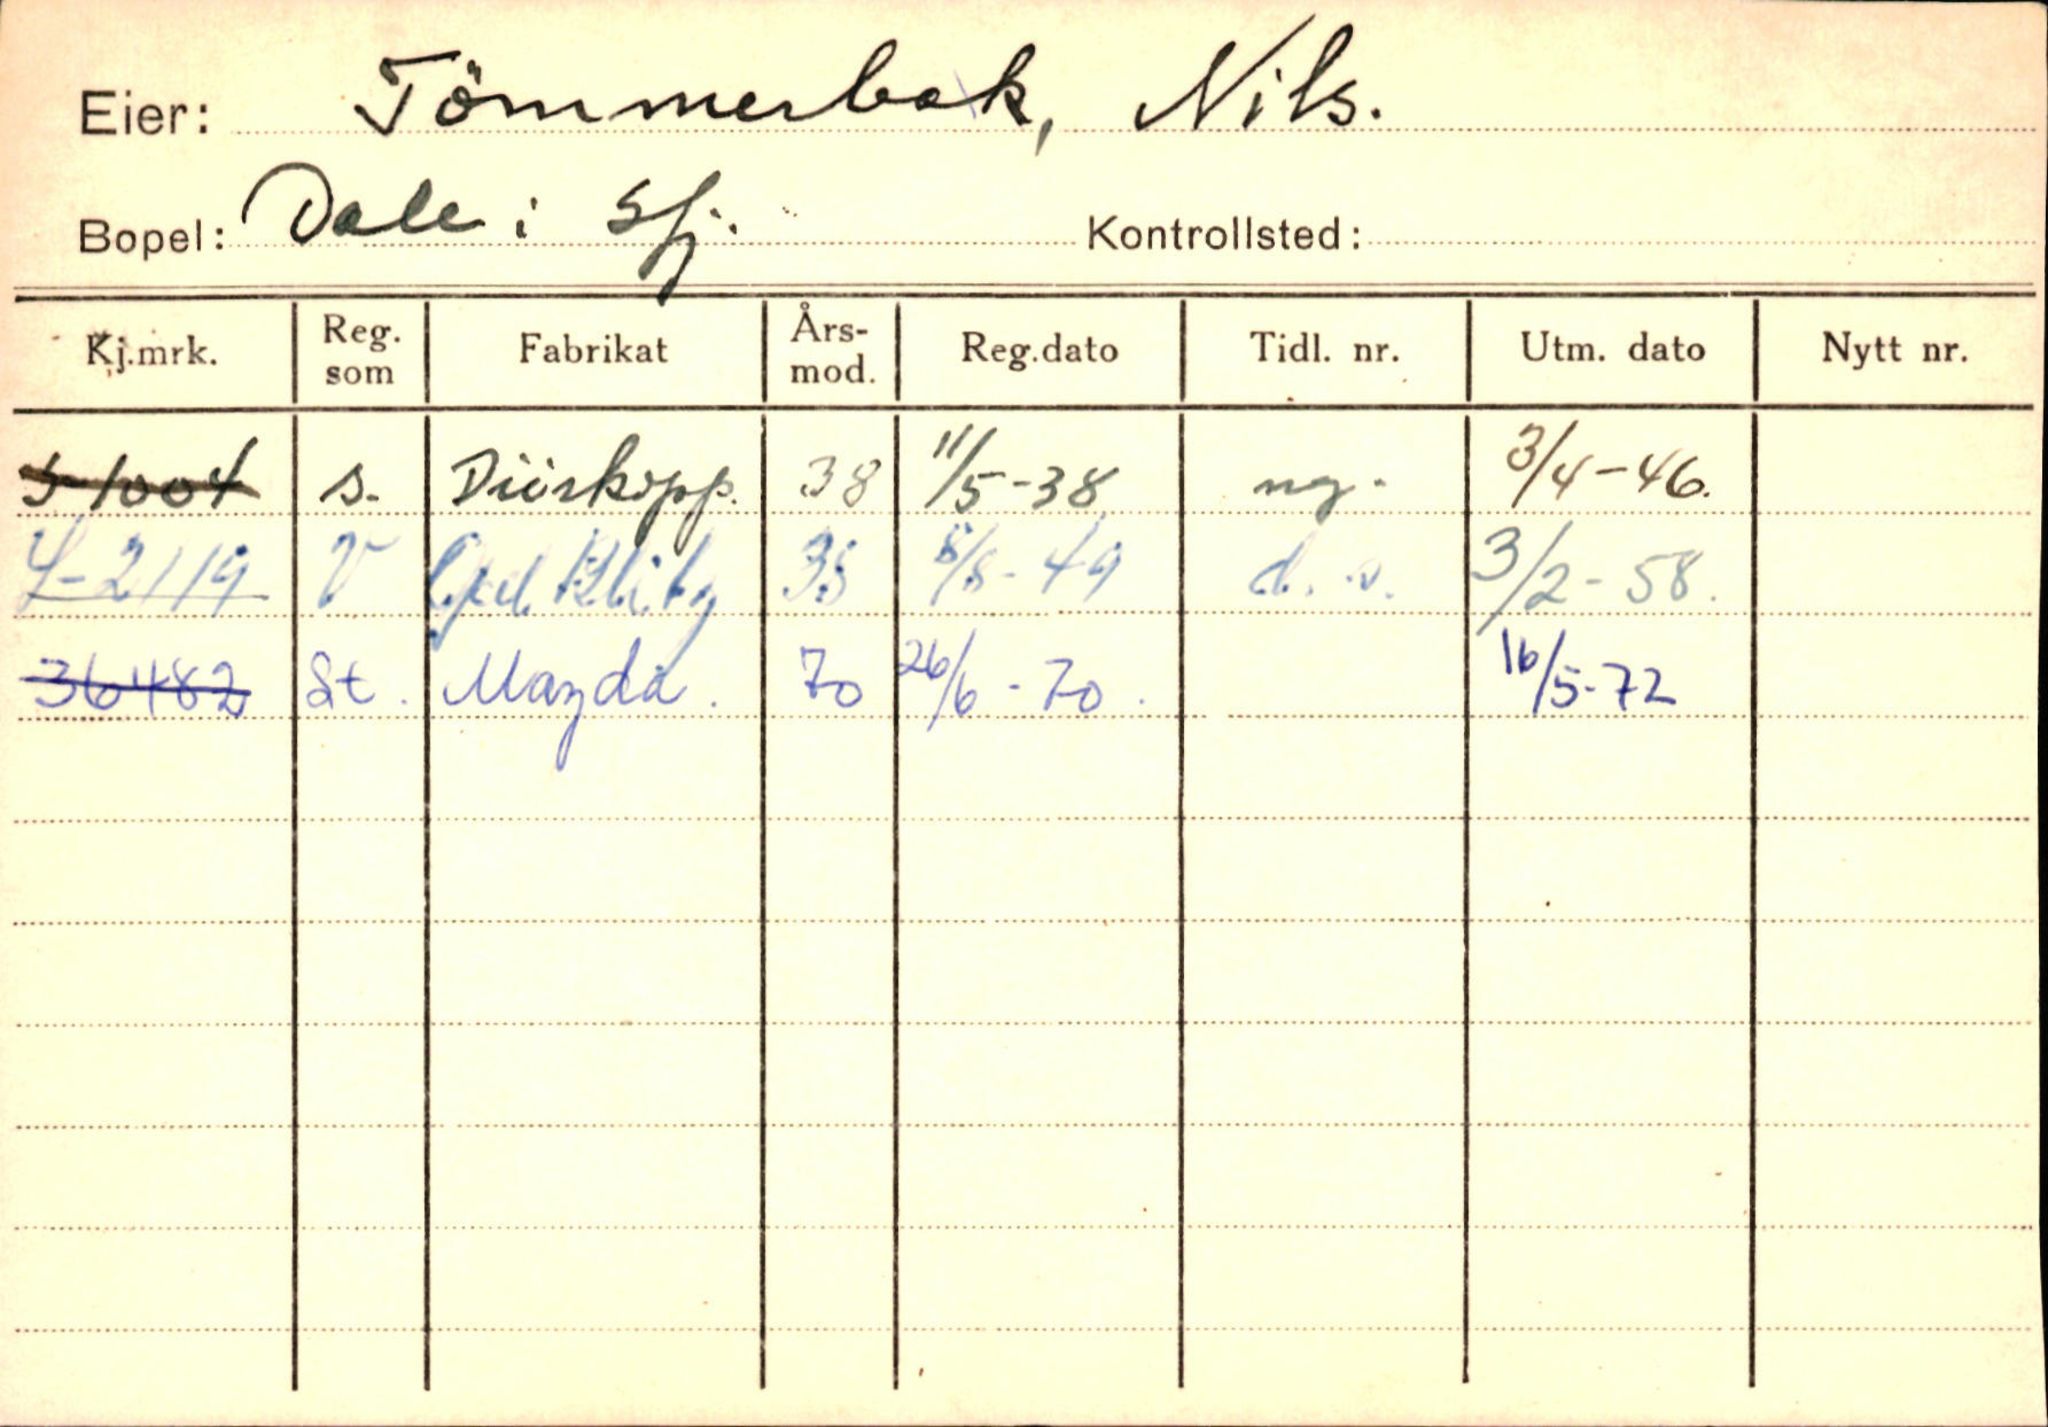 Eier: Tömmerbak, Nils.
Bopel: Dale i Sfj. Kontrollsted:
Kj.mrk. Reg. som Fabrikat Års-mod. Reg.dato Tidl. nr. Utm. dato Nytt nr.
S-1004 s. Dürkopp. 38 11/5-38 ny. 3/4-46.
S-2119 V Opel Blitz 38 8/8-49 d.s. 3/2-58.
36482 St. Mazda. 70 26/6-70. 16/5-72